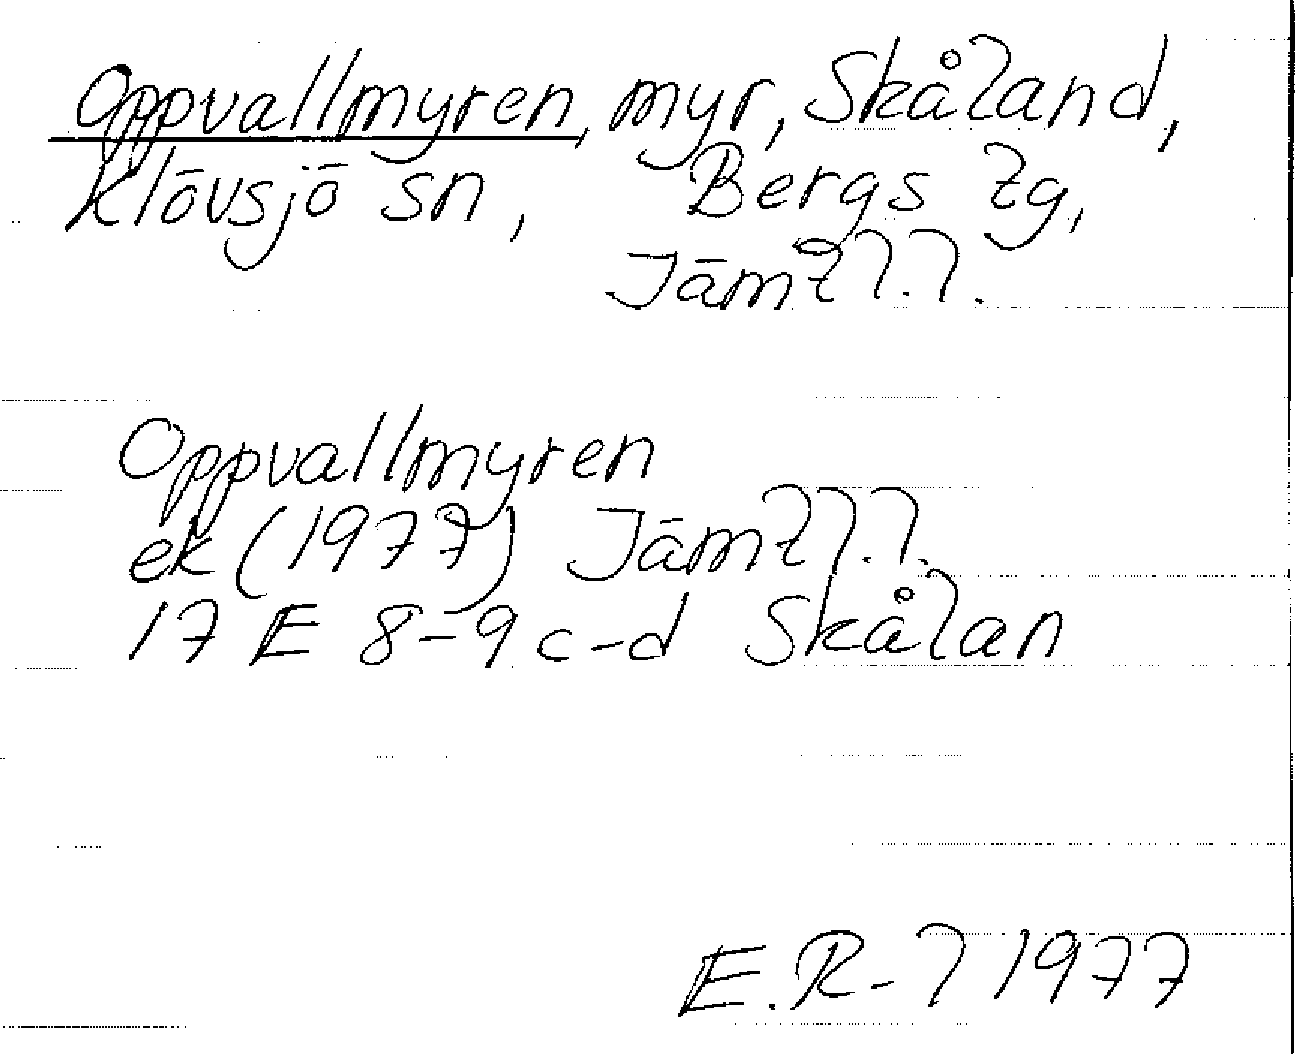 Oppvallmyren, myr, Skåland,
Klövsjö sn, Bergs tg,
Jämtl.l.
Oppvallmyren
ek (1977) Jämtl.l.
17 E 8-9 c-d Skålan
E.R-l 1977